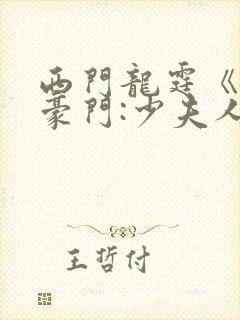 西門龍霆《
豪門:少夫人
王哲付